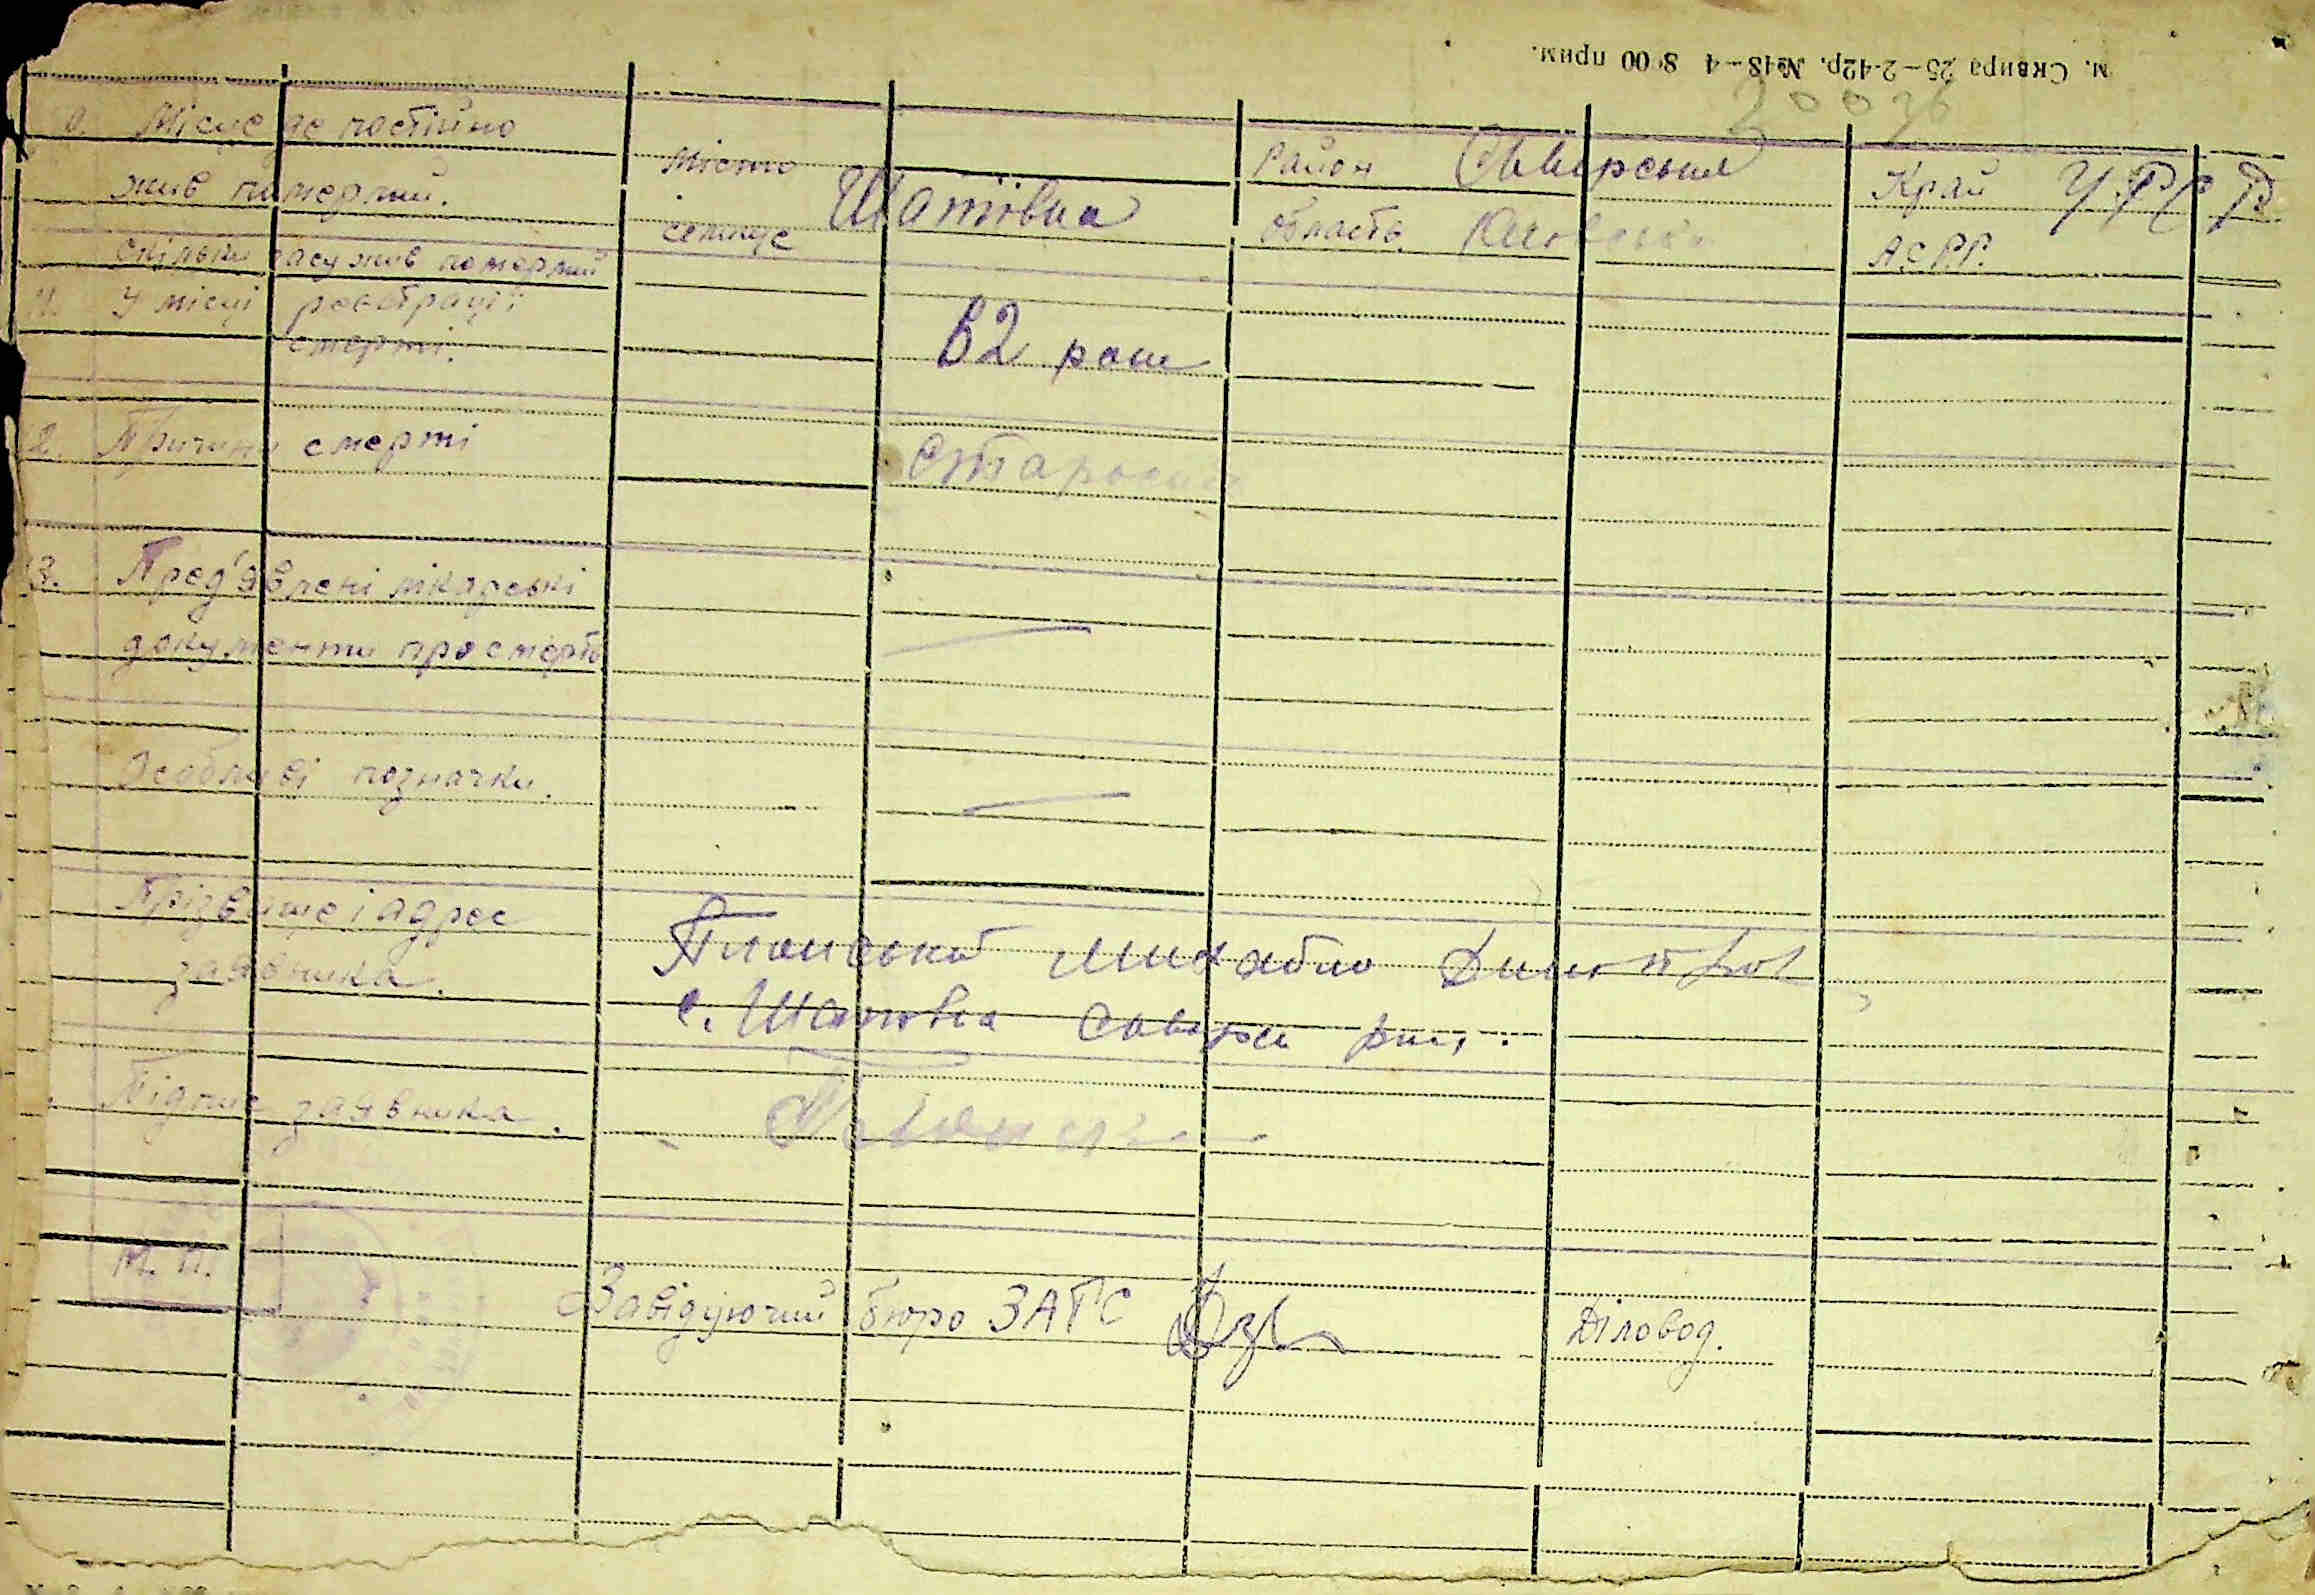 м. Сквира 25-2-42р. №48-4 8000 прим.
10. Місце де постійно
жив померлий.
Місто
селище
Шапіївка
Район Сквирський
область Київська
Край УРСР
А.С.Р.Р.
11. Скільки часу жив померлий
у місці реєстрації
смерті.
82 роки
12. Причина смерті
старость
13. Пред'явлені лікарські
документи про смерть
Особливі позначки.
Прізвище і адрес
заявника.
Михайло
с. Шапіївка Сквирськ
Підпис заявника.
М. П.
Завідуючий бюро ЗАГС
Діловод.